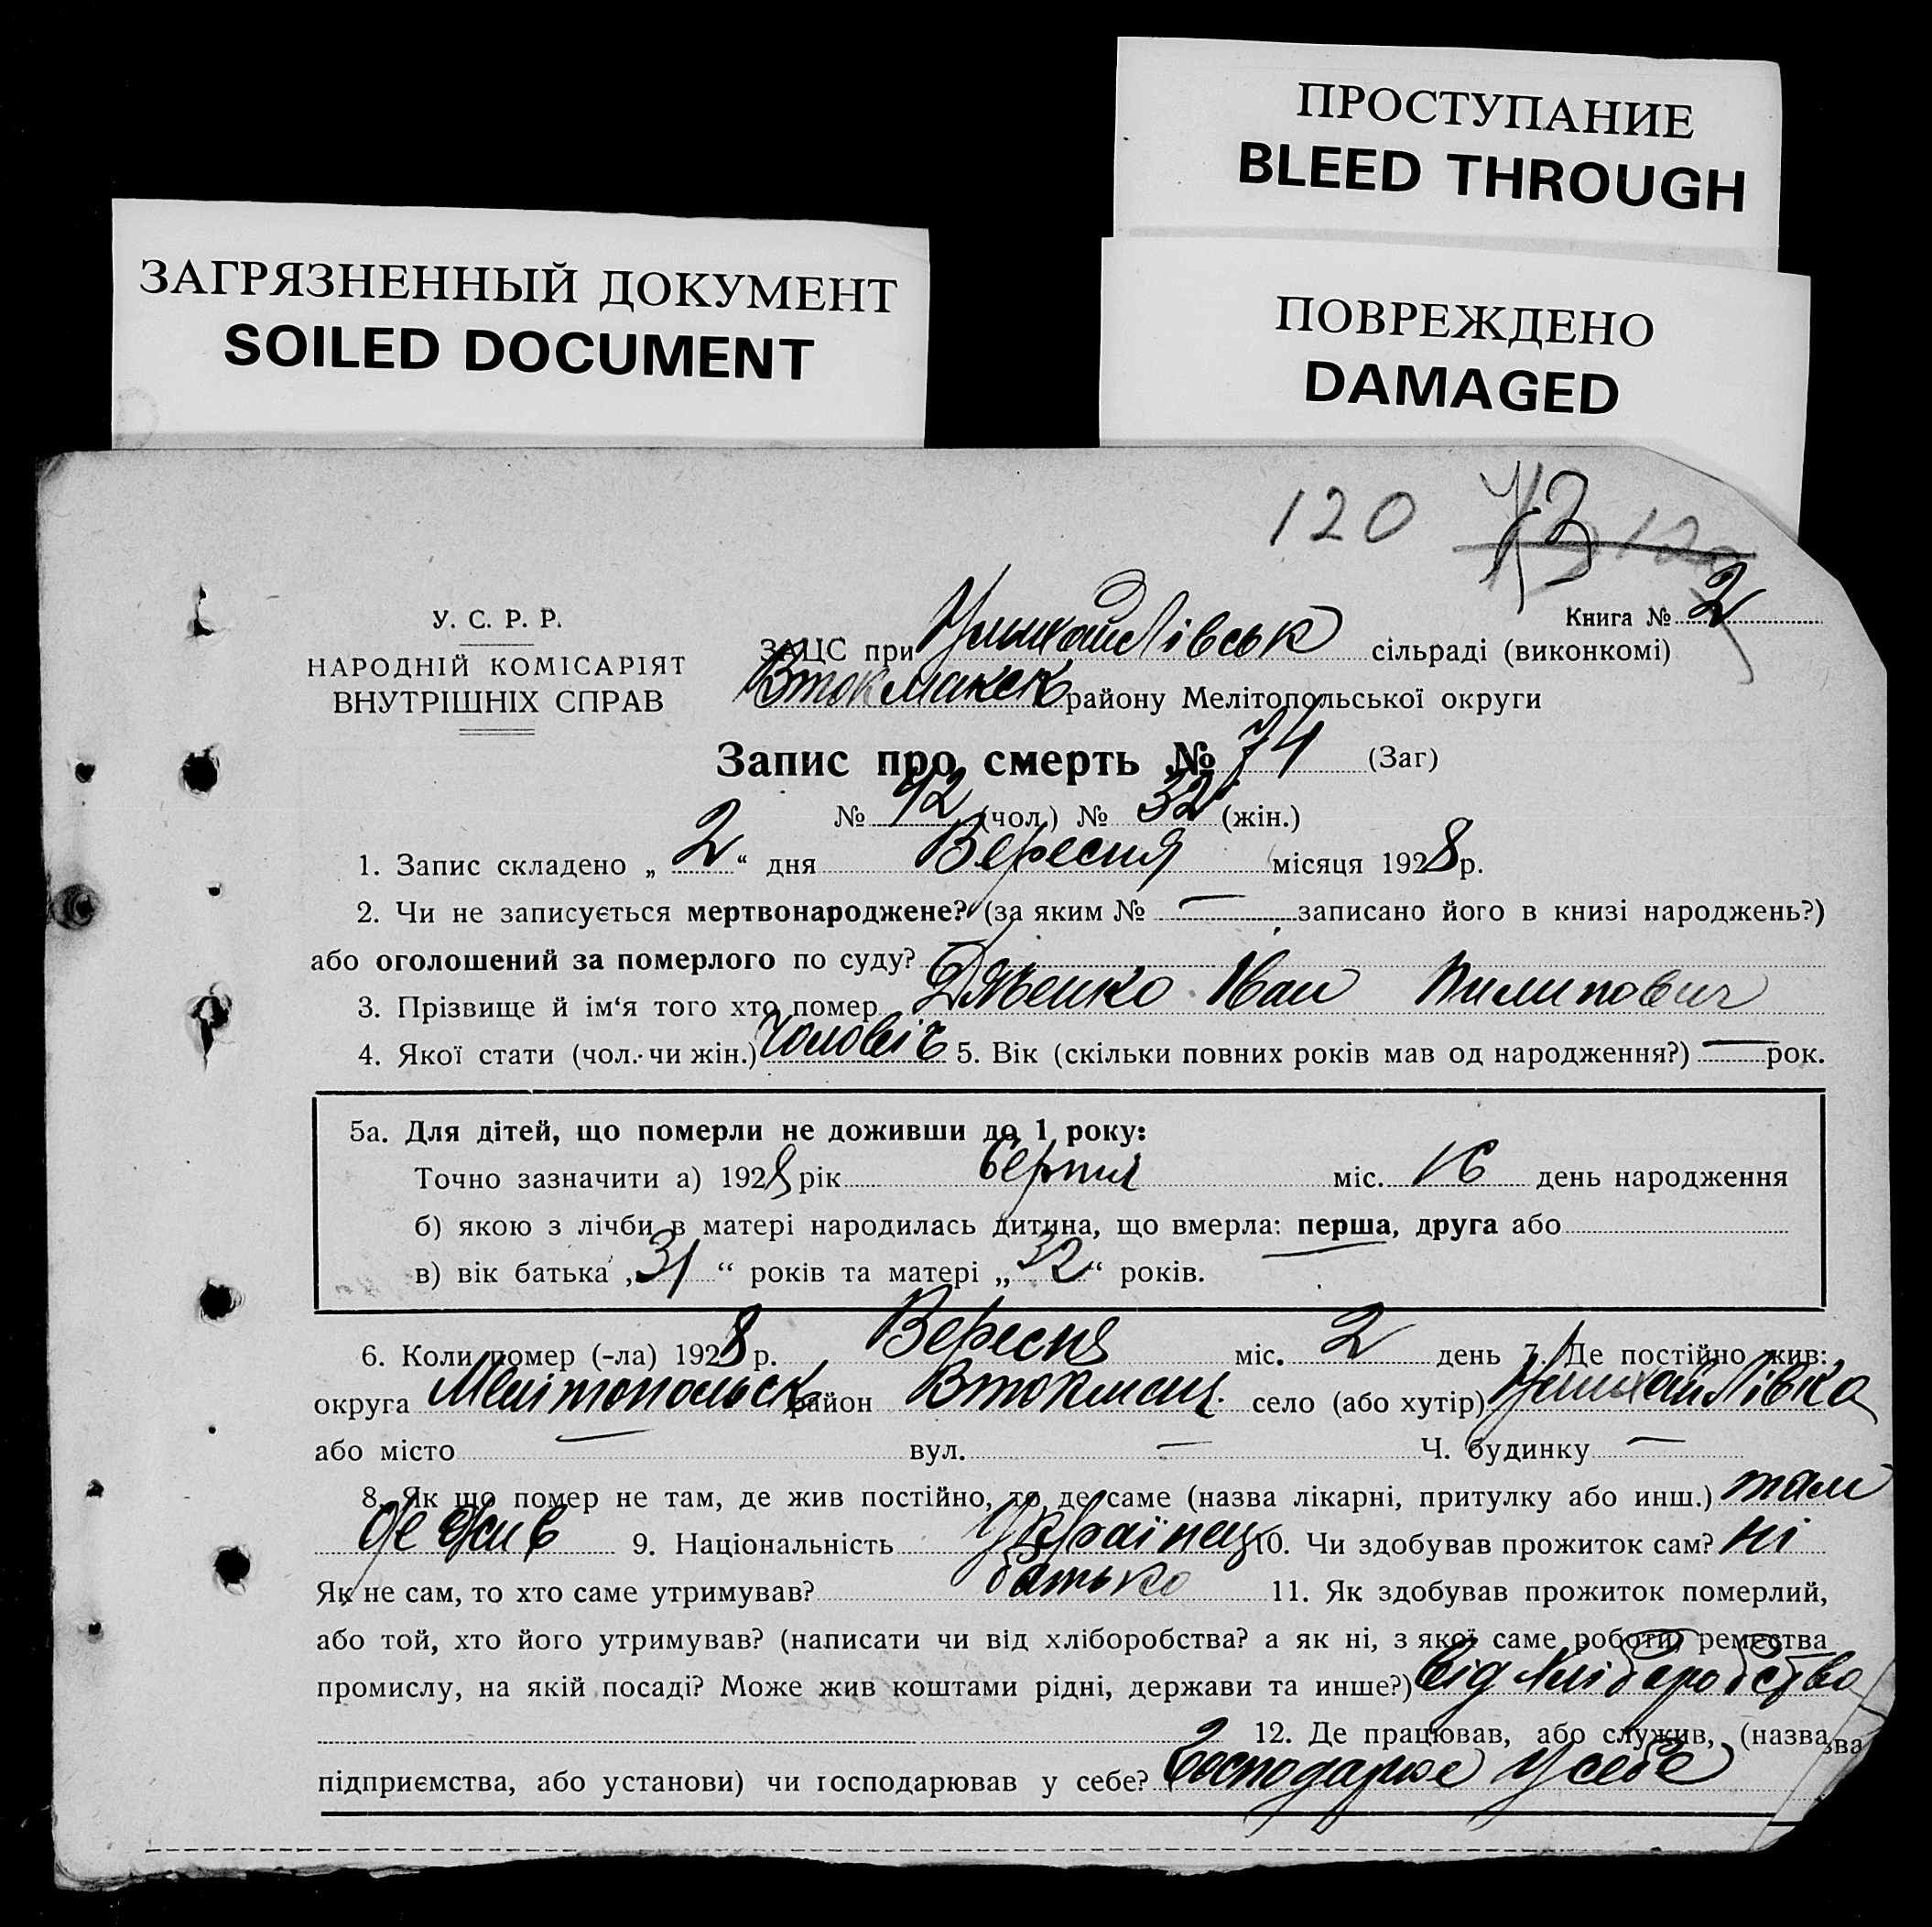 ПРОСТУПАНИЕ
BLEED THROUGH
ЗАГРЯЗНЕННЫЙ ДОКУМЕНТ
SOILED DOCUMENT
ПОВРЕЖДЕНО
DAMAGED
120 120
Книга № 2
У. С. Р. Р.
НАРОДНІЙ КОМІСАРІЯТ
ВНУТРІШНІХ СПРАВ
ЗАЦС при сільраді (виконкомі)
Втокмакск району Мелітопольської округи
Запис про смерть № 74 (Заг)
№ 42 (чол.) № 32 (жін.)
1. Запис складено „ 2 “ дня Вересня місяця 1928 р.
2. Чи не записується мертвонароджене? (за яким № — записано його в книзі народжень?)
або оголошений за померлого по суду?
3. Прізвище й ім‘я того хто помер Іван Пилипович
4. Якої стати (чол. чи жін.) Чоловіч 5. Вік (скільки повних років мав од народження?) — рок.
5а. Для дітей, що померли не доживши до 1 року:
Точно зазначити а) 1928 рік Серпня міс. 16 день народження
б) якою з лічби в матері народилась дитина, що вмерла: перша, друга або
в) вік батька „ 31 “ років та матері „ 32 “ років.
6. Коли помер (-ла) 1928 р. Вересня міс. 2 день 7. Де постійно жив:
округа Мелітопольськ район Втокмац. село (або хутір)
або місто — вул. — Ч. будинку —
8. Як що помер не там, де жив постійно, то де саме (назва лікарні, притулку або инш.) там
де жив 9. Національність Українец 10. Чи здобував прожиток сам? ні
Як не сам, то хто саме утримував? батько 11. Як здобував прожиток померлий,
або той, хто його утримував? (написати чи від хліборобства? а як ні, з якої саме роботи, ремества
промислу, на якій посаді? Може жив коштами рідні, держави та инше?) від хліборобства
12. Де працював, або служив, (назва
підприємства, або установи) чи господарював у себе? Господарює у себе